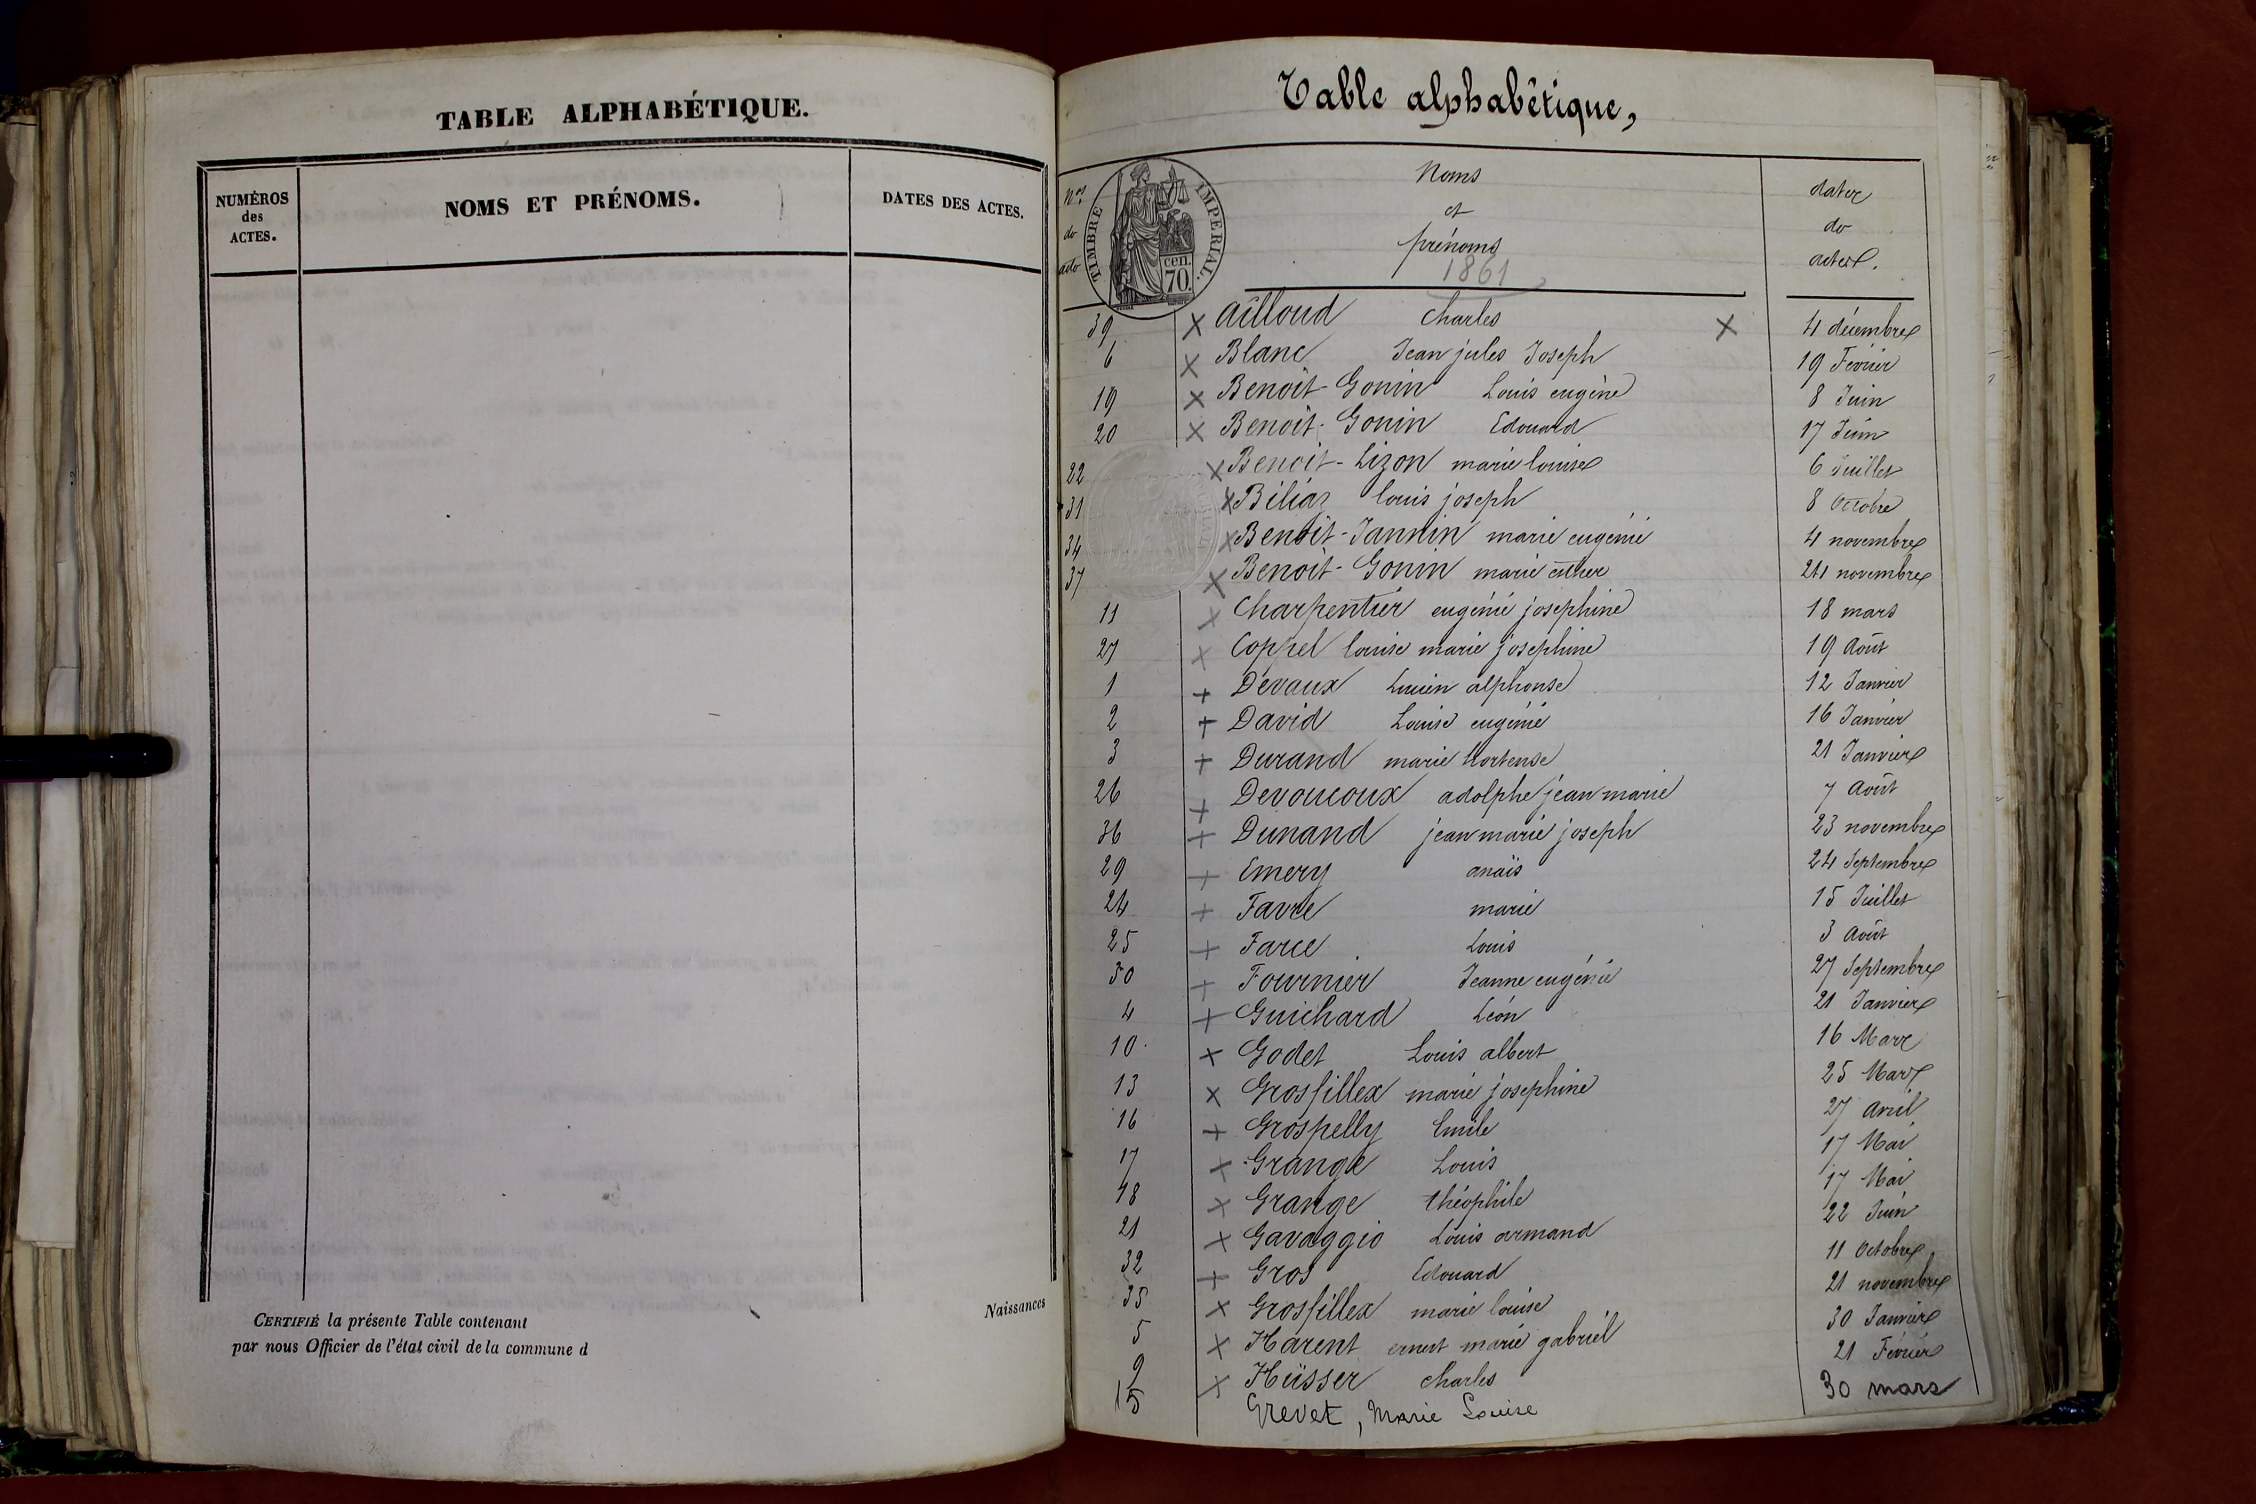 TABLE ALPHABÉTIQUE.
NUMÉROS des ACTES.
NOMS ET PRÉNOMS.
DATES DES ACTES.
CERTIFIÉ la présente Table contenant
par nous Officier de l'état civil de la commune d
Naissances
Table alphabêtique,
Nos
de
Noms
et
prénoms
1861
dates
de
actes.
TIMBRE IMPERIAL.
70 cen.
39 × Aîlloud Charles × 4 décembre
6 × Blanc Jean jules Joseph 19 Février
19 × Benoît-Gonin Louis eugène 8 Juin
20 × Benoît-Gonin Edouard 17 Juin
22 × Benoit-Lizon marie louise 6 Juillet
31 × Biliaz louis joseph 8 Octobre
34 × Benoît-Jannin marie eugénie 4 novembre
37 × Benoit-Gonin marie esther 24 novembre
11 × Charpentier eugénie josephine 18 mars
27 × Coppel louise marie josephine 19 Août
1 + Devaux Lucien alphonse 12 Janvier
2 + David Louise eugénie 16 Janvier
3 + Durand marie hortense 21 Janvier
26 + Devoucoux adolphe jean marie 7 Août
36 + Dunand jean marie joseph 23 novembre
29 + Emery anaïs 24 Septembre
24 + Favre marie 15 Juillet
25 + Farce Louis 3 Août
30 + Fournier Jeanne eugénie 27 Septembre
4 + Guichard Léon 21 Janvier
10 × Godet Louis albert 16 Mars
13 × Grosfillex marie josephine 25 Mars
16 + Grospelly Emile 27 Avril
17 + Grange Louis 17 Mai
18 × Grange théophile 17 Mai
21 × Gavaggio Louis armand 22 Juin
32 + Gros Edouard 11 Octobre
35 × Grosfillex marie louise 21 novembre
5 × Harent ernest marie gabriel 30 Janvier
9 × Hüsser Charles 21 Février
15 Grevet, Marie Louise 30 mars